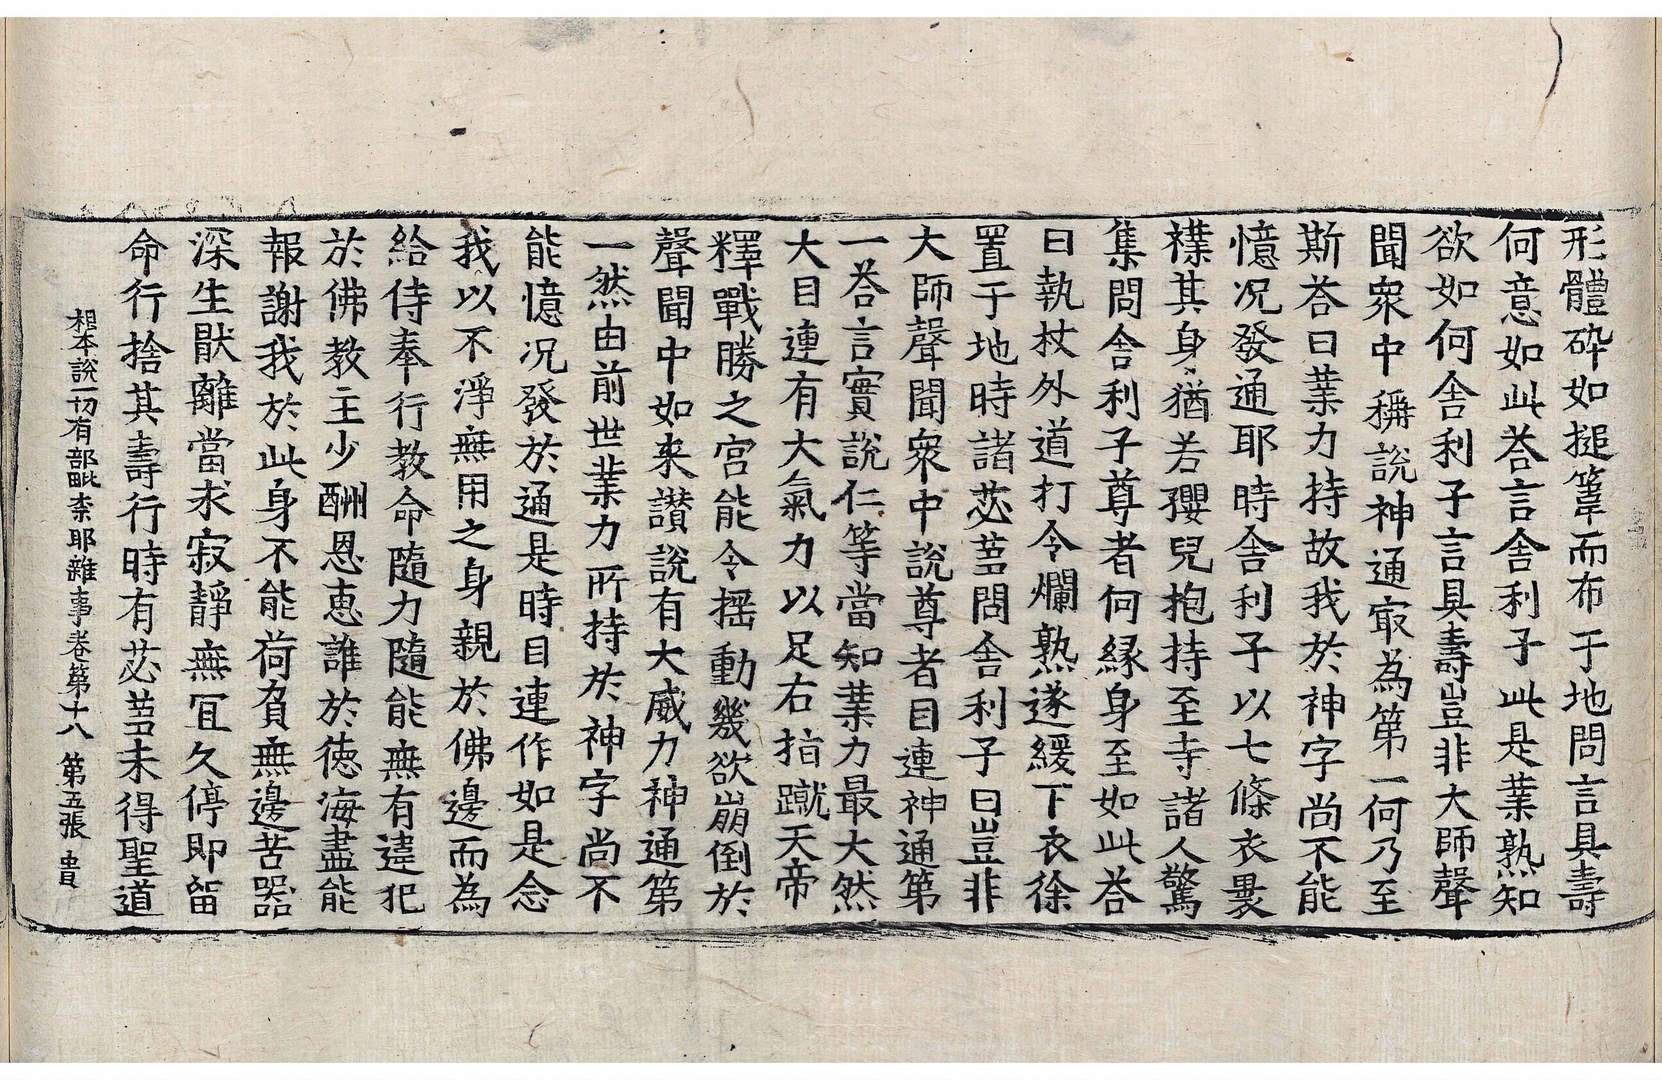 形體碎如搥葦而布于地問言具壽
何意如此荅言舍利子此是業熟知
欲如何舍利子言具壽豈非大師聲
聞衆中稱說神通㝡為第一何乃至
斯荅曰業力持故我於神字尚不能
憶况發通耶時舍利子以七條衣褁
襍其身猶若孾兒抱持至寺諸人驚
集問舍利子尊者何縁身至如此荅
曰執杖外道打令爛熟遂緩下衣徐
置于地時諸苾蒭問舍利子曰豈非
大師聲聞衆中說尊者目連神通第
一荅言實說仁等當知業力最大然
大目連有大氣力以足右指蹴天帝
釋戰勝之宮能令揺動幾欲崩倒於
聲聞中如来讃說有大威力神通第
一然由前世業力所持於神字尚不
能憶况發於通是時目連作如是念
我以不淨無用之身親於佛邊而為
給侍奉行教命隨力隨能無有違犯
於佛教主少酬恩惠誰於徳海盡能
報謝我於此身不能荷負無邊苦器
深生猒離當求寂靜無冝久停即留
命行捨其壽行時有苾蒭未得聖道
根本說一切有部毗柰耶雜事卷第十八 第五張 書